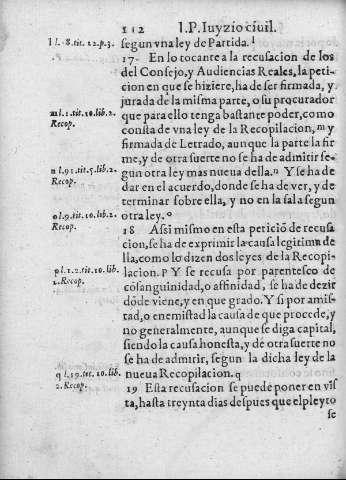 112 I.P. Iuyzio ciuil.
l l.8.tit.12.p.3.
segun vna ley de Partida.l
17- En lo tocante a la recusacion de los
del Consejo, y Audiencias Reales, la peti-
cion en que se hiziere, ha de ser firmada, y
jurada de la misma parte, o su procurador
m l.1.tit.10.lib.2.
Recop.
que para ello tenga bastante poder, como
consta de vna ley de la Recopilacion, m y
firmada de Letrado, aunque la parte la fir
me, y de otra suerte no se ha de admitir se-
n l.91.tit.5.lib.2.
Recop.
gun otra ley mas nueua della.n Y se ha de
dar en el acuerdo, donde se ha de ver, y de
terminar sobre ella, y no en la sala segun
o l.9.tit.10.lib.2.
Recop.
otra ley.o
18 Assi mismo en esta peticiõ de recusa
cion, se ha de exprimir la causa legitima de
lla, como lo dizen dos leyes de la Recopi-
p l.1.2.tit.10.lib.
2.Recop.
lacion.p Y se recusa por parentesco de
cõsanguinidad, o affinidad, se ha de dezir
dõde viene, y en que grado. Y si por amis-
tad, o enemistad la causa de que procede, y
no generalmente, aunque se diga capital,
siendo la causa honesta, y de otra suerte no
se ha de admitir, segun la dicha ley de la
q l.19.tit.10.lib.
2.Recop.
nueua Recopilacion.q
19 Esta recusacion se puede poner en vis
ta, hasta treynta dias despues que el pleyto
se